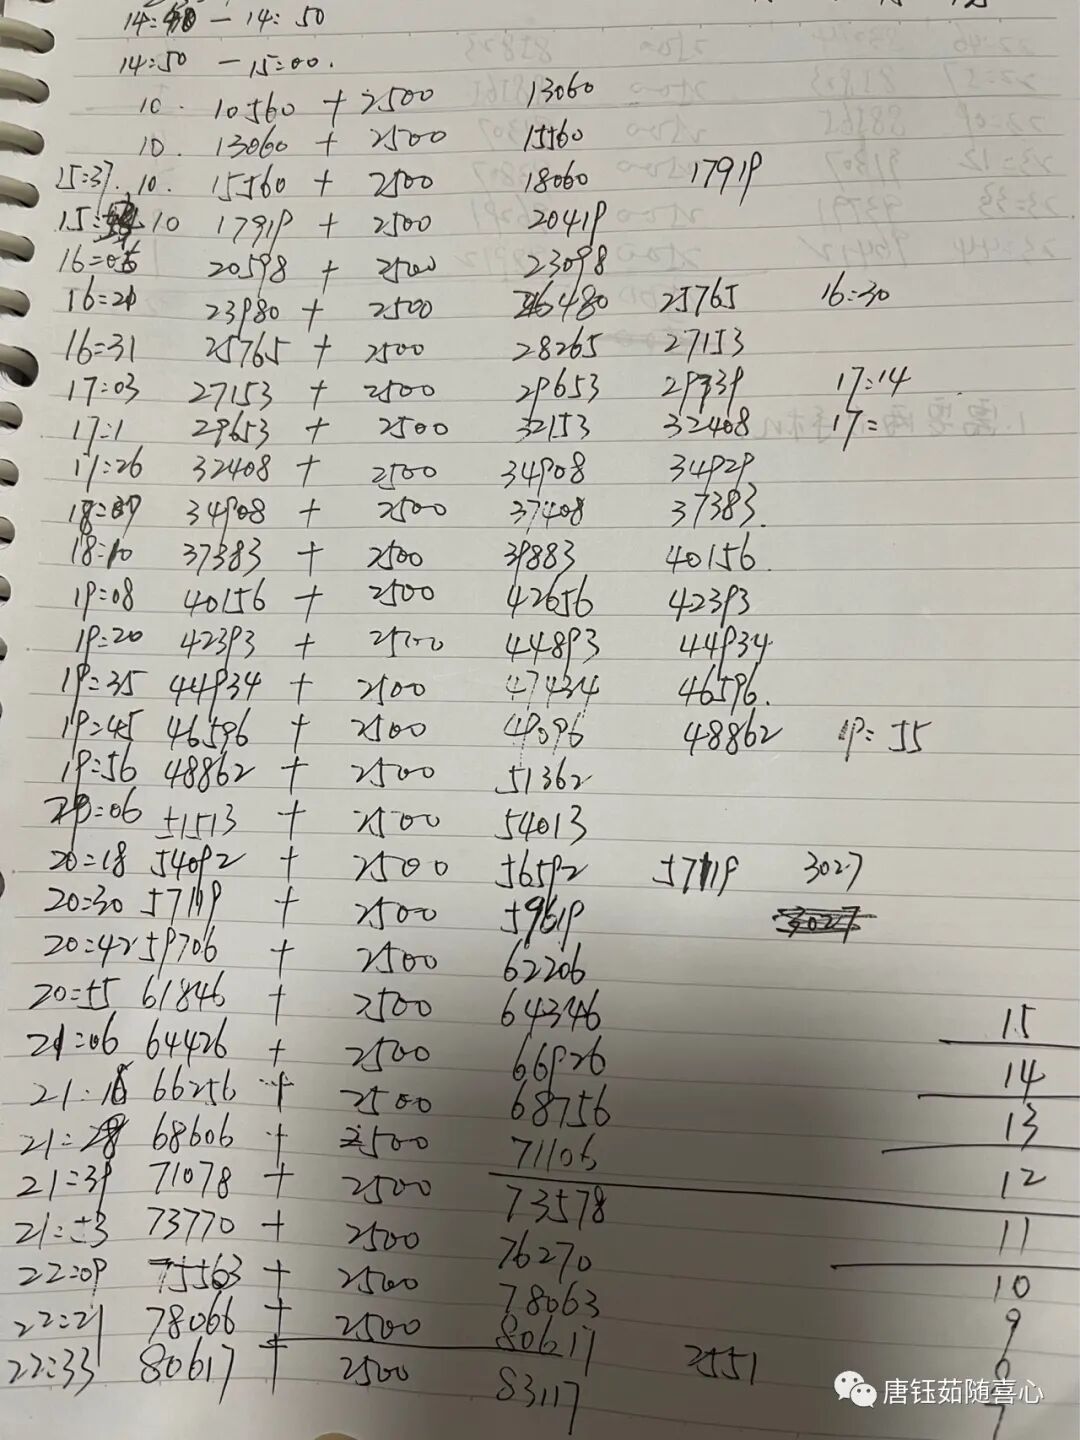 14:40 - 14:50
14:50 - 15:00.
10. 10560 + 2500 13060
10. 13060 + 2500 15560
15:37. 10. 15560 + 2500 18060 17919
15: 10 17919 + 2500 20419
16:06 20598 + 2500 23098
16:21 23980 + 2500 26480 25765 16:30
16:31 25765 + 2500 28265 27153
17:03 27153 + 2500 29653 29939 17:14
17:1 29653 + 2500 32153 32408 17:
17:26 32408 + 2500 34908 34929
18:07 34908 + 2500 37408 37383.
18:10 37383 + 2500 39883 40156.
19:08 40156 + 2500 42656 42393
19:20 42393 + 2500 44893 44934
19:35 44934 + 2500 47434 46596.
19:45 46596 + 2500 49096 48862 19:55
19:56 48862 + 2500 51362
20:06 51513 + 2500 54013
20:18 54092 + 2500 56592 57119 3027
20:30 57119 + 2500 59619 3027
20:42 59706 + 2500 62206
20:55 61846 + 2500 64346 15
21:06 64426 + 2500 66926 14
21:18 66256 + 2500 68756 13
21:28 68606 + 2500 71106 12
21:39 71078 + 2500 73578 11
21:53 73770 + 2500 76270 10
22:09 75563 + 2500 78063 9
22:21 78066 + 2500 80617
22:33 80617 + 2500 83117 2551 7
唐钰茹随喜心